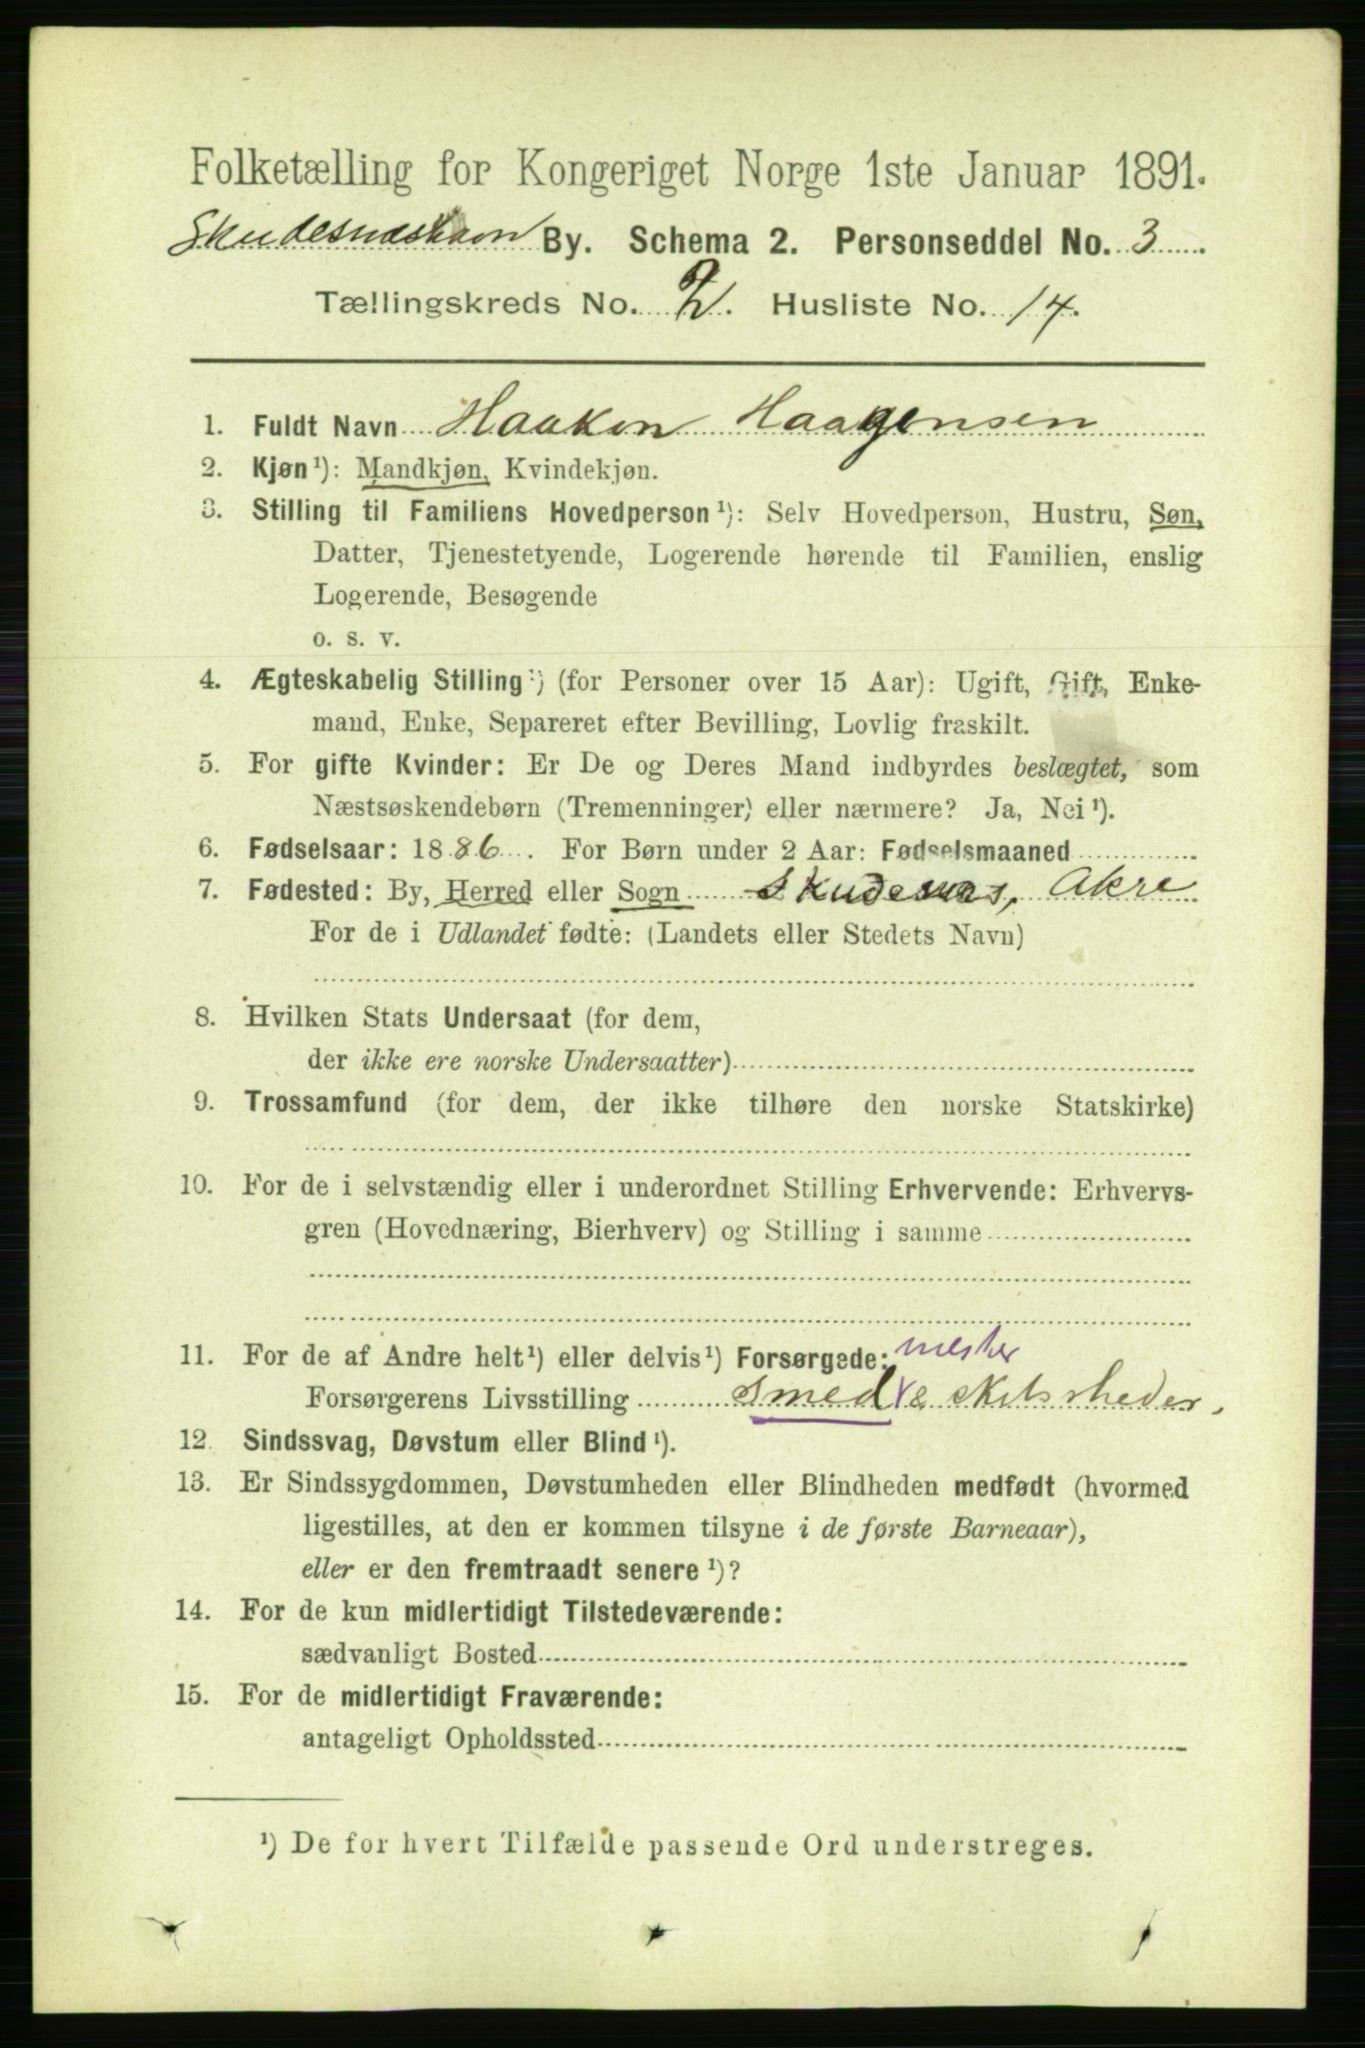 Folketælling for Kongeriget Norge 1ste Januar 1891.
Skudesnæshavn By. Schema 2. Personseddel No. 3
Tællingskreds No. 2. Husliste No. 14.
1. Fuldt Navn Haakon Haagensen
2. Kjøn ¹): Mandkjøn, Kvindekjøn.
3. Stilling til Familiens Hovedperson ¹): Selv Hovedperson, Hustru, Søn,
Datter, Tjenestetyende, Logerende hørende til Familien, enslig
Logerende, Besøgende
o. s. v.
4. Ægteskabelig Stilling ¹) (for Personer over 15 Aar): Ugift, Gift, Enke-
mand, Enke, Separeret efter Bevilling, Lovlig fraskilt.
5. For gifte Kvinder: Er De og Deres Mand indbyrdes beslægtet, som
Næstsøskendebørn (Tremenninger) eller nærmere? Ja, Nei ¹).
6. Fødselsaar: 1886. For Børn under 2 Aar: Fødselsmaaned
7. Fødested: By, Herred eller Sogn Skudesnæs, Akre
For de i Udlandet fødte: (Landets eller Stedets Navn)
8. Hvilken Stats Undersaat (for dem,
der ikke ere norske Undersaatter)
9. Trossamfund (for dem, der ikke tilhøre den norske Statskirke)
10. For de i selvstændig eller i underordnet Stilling Erhvervende: Erhvervs-
gren (Hovednæring, Bierhverv) og Stilling i samme
11. For de af Andre helt ¹) eller delvis ¹) Forsørgede: mester
Forsørgerens Livsstilling Smed &
12. Sindssvag, Døvstum eller Blind ¹).
13. Er Sindssygdommen, Døvstumheden eller Blindheden medfødt (hvormed
ligestilles, at den er kommen tilsyne i de første Barneaar),
eller er den fremtraadt senere ¹)?
14. For de kun midlertidigt Tilstedeværende:
sædvanligt Bosted
15. For de midlertidigt Fraværende:
antageligt Opholdssted
¹) De for hvert Tilfælde passende Ord understreges.